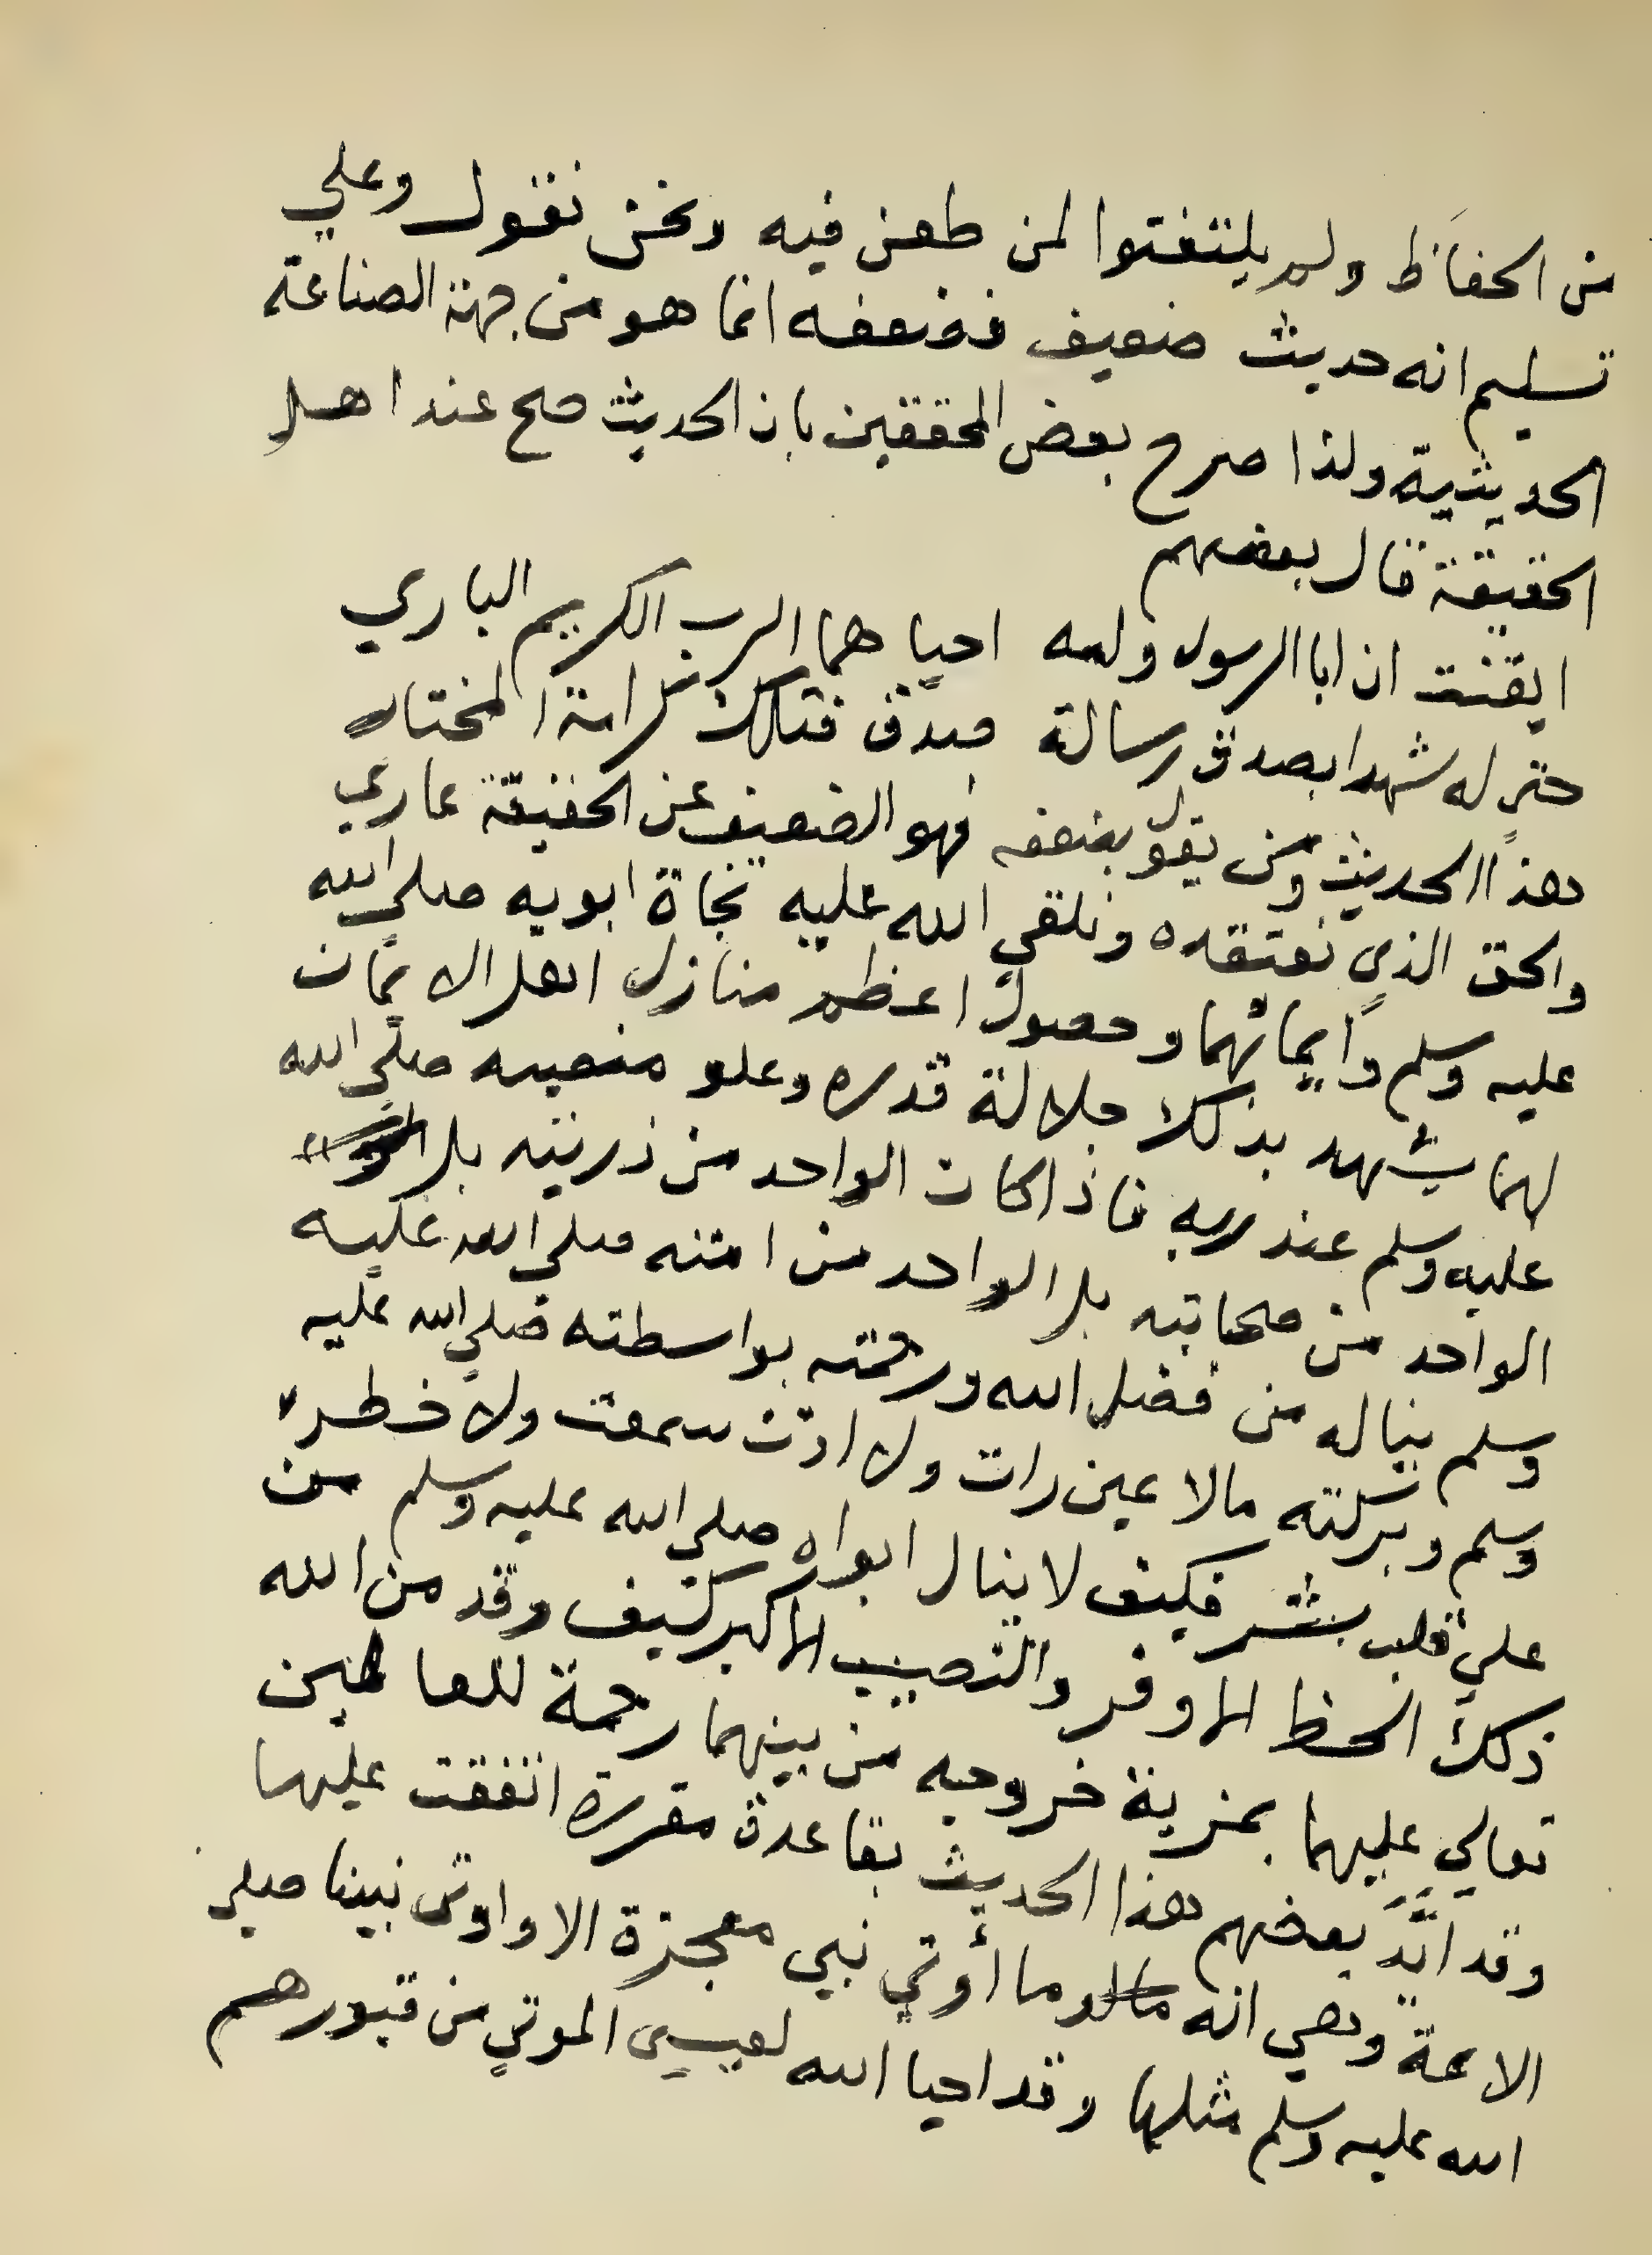 من الحفاظ ولم يلتفتوا لمن طعن فيه ونحن نقول وعلي
تسليم انه حديث ضعيف فضعفه انما هو من جهة الصناعة
الحديثية ولذا صرح بعض المحققين بان الحديث صح عند اهل
الحقيقة قال بعضهم
ايقنت ان ابا الرسول وامه احياهما الرب الكريم الباري
حتي له شهدا بصدق رسالة صدق فتلك كرامة المختار
هذا الحديث ومن يقول بضعفه فهو الضعيف عن الحقيقة عاري
والحق الذي نعتقده ونلقي الله عليه نجاة ابويه صلي الله
عليه وسلم وايمانهما وحصول اعظم منازل اهل الايمان
لهما يشهد بذلك جلالة قدره وعلو منصبه صلي الله
عليه وسلم عند ربه فاذا كان الواحد من ذريته بل
الواحد من صحابته بل الواحد من امته صلي الله عليه
وسلم يناله من فضل الله ورحمته بواسطته صلي الله عليه
وسلم وبركته مالا عين رات ولا اذن سمعت ولا خطر
علي قلب بشر فكيف لا ينال ابواه صلي الله عليه وسلم من
ذلك الحظ الاوفر والنصيب الاكبر كيف وقد من الله
تعالي عليهما بمزية خروجه من بينهما رحمة للعالمين
وقد ايد بعضهم هذا الحديث بقاعدة مقررة اتفقت عليها
الائمة وهي انه ما أوتي نبي معجزة الا واوتي نبينا صلي
الله عليه وسلم مثلها وقد احيا الله لعيسي الموتي من قبورهم